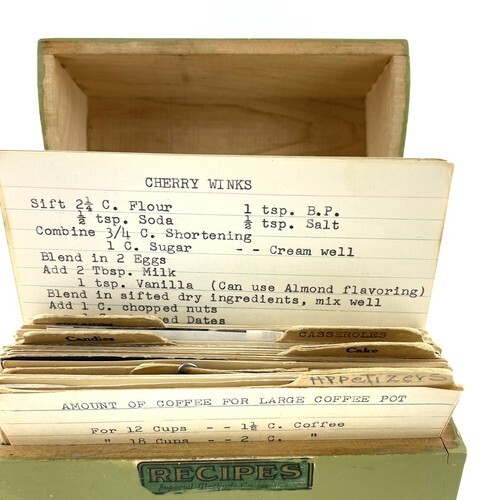 CHERRY WINKS
Sift 2¼ C. Flour 1 tsp. B.P.
½ tsp. Soda ½ tsp. Salt
Combine 3/4 C. Shortening
1 C. Sugar - - Cream well
Blend in 2 Eggs
Add 2 Tbsp. Milk
1 tsp. Vanilla (Can use Almond flavoring)
Blend in sifted dry ingredients, mix well
Add 1 C. chopped nuts
Dates
CASSEROLES
Candies
Cake
Appetizers
AMOUNT OF COFFEE FOR LARGE COFFEE POT
For 12 Cups - - 1½ C. Coffee
" 18 Cups - - 2 C. "
RECIPES